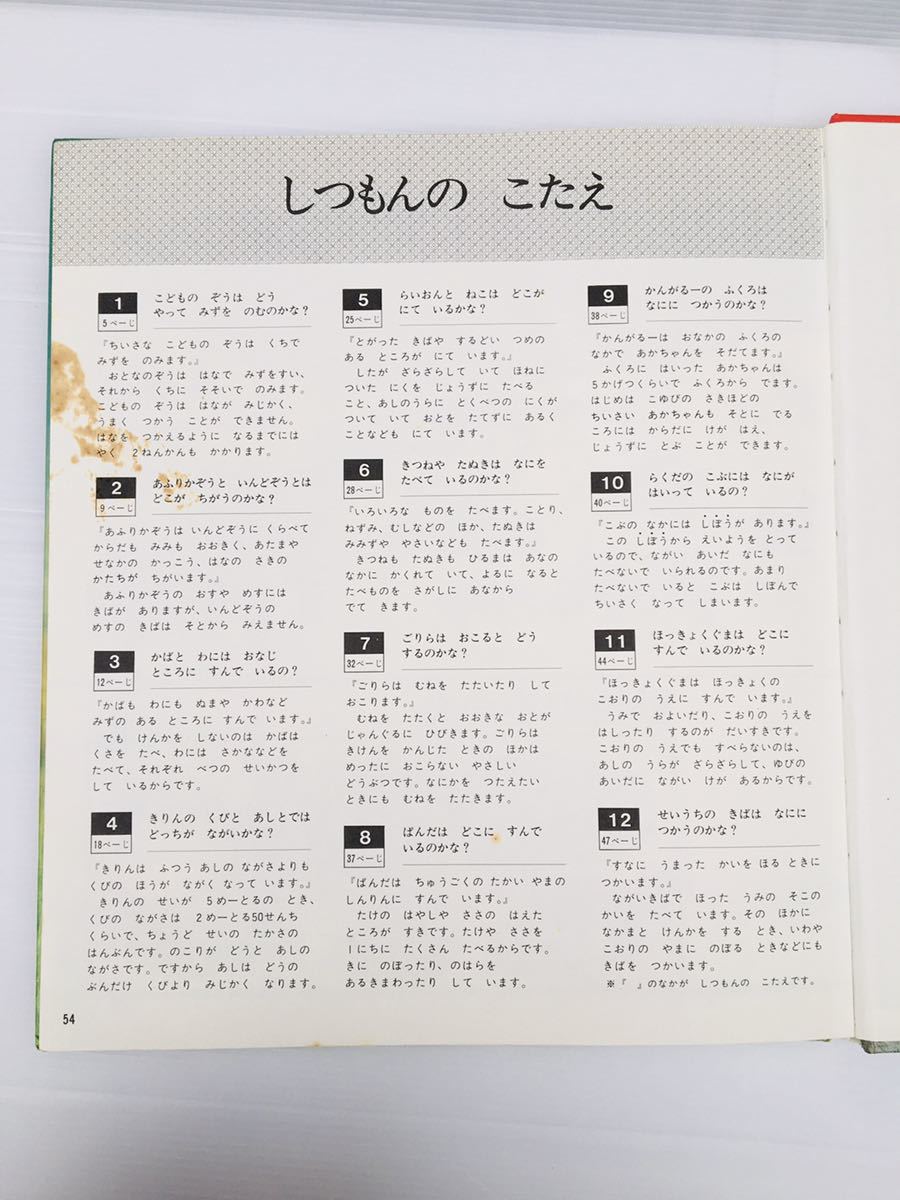 しつもんの　こたえ
1
5ぺーじ
こどもの　ぞうは　どう
やって　みずを　のむのかな？
『ちいさな　こどもの　ぞうは　くちで
みずを　のみます。』
　おとなのぞうは　はなで　みずをすい、
それから　くちに　そそいで　のみます。
こどもの　ぞうは　はなが　みじかく、
うまく　つかう　ことが　できません。
はなを　つかえるように　なるまでには
やく　2ねんかんも　かかります。
2
9ぺーじ
あふりかぞうと　いんどぞうとは
どこが　ちがうのかな？
『あふりかぞうは　いんどぞうに　くらべて
からだも　みみも　おおきく、あたまや
せなかの　かっこう、はなの　さきの
かたちが　ちがいます。』
　あふりかぞうの　おすや　めすには
きばが　ありますが、いんどぞうの
めすの　きばは　そとから　みえません。
3
12ぺーじ
かばと　わには　おなじ
ところに　すんで　いるの？
『かばも　わにも　ぬまや　かわなど
みずの　ある　ところに　すんで　います。』
　でも　けんかを　しないのは　かばは
くさを　たべ、わには　さかななどを
たべて、それぞれ　べつの　せいかつを
して　いるからです。
4
18ぺーじ
きりんの　くびと　あしとでは
どっちが　ながいかな？
『きりんは　ふつう　あしの　ながさよりも
くびの　ほうが　ながく　なって　います。』
　きりんの　せいが　5めーとるの　とき、
くびの　ながさは　2めーとる50せんち
くらいで、ちょうど　せいの　たかさの
はんぶんです。のこりが　どうと　あしの
ながさです。ですから　あしは　どうの
ぶんだけ　くびより　みじかく　なります。
5
25ぺーじ
らいおんと　ねこは　どこが
にて　いるかな？
『とがった　きばや　するどい　つめの
ある　ところが　にて　います。』
　したが　ざらざらして　いて　ほねに
ついた　にくを　じょうずに　たべる
こと、あしのうらに　とくべつの　にくが
ついて　いて　おとを　たてずに　あるく
ことなども　にて　います。
6
28ぺーじ
きつねや　たぬきは　なにを
たべて　いるのかな？
『いろいろな　ものを　たべます。ことり、
ねずみ、むしなどの　ほか、たぬきは
みみずや　やさいなども　たべます。』
　きつねも　たぬきも　ひるまは　あなの
なかに　かくれて　いて、よるに　なると
たべものを　さがしに　あなから
でて　きます。
7
32ぺーじ
ごりらは　おこると　どう
するのかな？
『ごりらは　むねを　たたいたり　して
おこります。』
　むねを　たたくと　おおきな　おとが
じゃんぐるに　ひびきます。ごりらは
きけんを　かんじた　ときの　ほかは
めったに　おこらない　やさしい
どうぶつです。なにかを　つたえたい
ときにも　むねを　たたきます。
8
37ぺーじ
ぱんだは　どこに　すんで
いるのかな？
『ぱんだは　ちゅうごくの　たかい　やまの
しんりんに　すんで　います。』
　たけの　はやしや　ささの　はえた
ところが　すきです。たけや　ささを
1にちに　たくさん　たべるからです。
きに　のぼったり、のはらを
あるきまわったり　して　います。
9
38ぺーじ
かんがるーの　ふくろは
なにに　つかうのかな？
『かんがるーは　おなかの　ふくろの
なかで　あかちゃんを　そだてます。』
　ふくろに　はいった　あかちゃんは
5かげつくらいで　ふくろから　でます。
はじめは　こゆびの　さきほどの
ちいさい　あかちゃんも　そとに　でる
ころには　からだに　けが　はえ、
じょうずに　とぶ　ことが　できます。
10
40ぺーじ
らくだの　こぶには　なにが
はいって　いるの？
『こぶの　なかには　しぼうが　あります。』
　この　しぼうから　えいようを　とって
いるので、ながい　あいだ　なにも
たべないで　いられるのです。あまり
たべないで　いると　こぶは　しぼんで
ちいさく　なって　しまいます。
11
44ぺーじ
ほっきょくぐまは　どこに
すんで　いるのかな？
『ほっきょくぐまは　ほっきょくの
こおりの　うえに　すんで　います。』
　うみで　およいだり、こおりの　うえを
はしったり　するのが　だいすきです。
こおりの　うえでも　すべらないのは、
あしの　うらが　ざらざらして、ゆびの
あいだに　ながい　けが　あるからです。
12
47ぺーじ
せいうちの　きばは　なにに
つかうのかな？
『すなに　うまった　かいを　ほる　ときに
つかいます。』
　ながいきばで　ほった　うみの　そこの
かいを　たべて　います。その　ほかに
なかまと　けんかを　する　とき、いわや
こおりの　やまに　のぼる　ときなどにも
きばを　つかいます。
※『　』のなかが　しつもんの　こたえです。
54